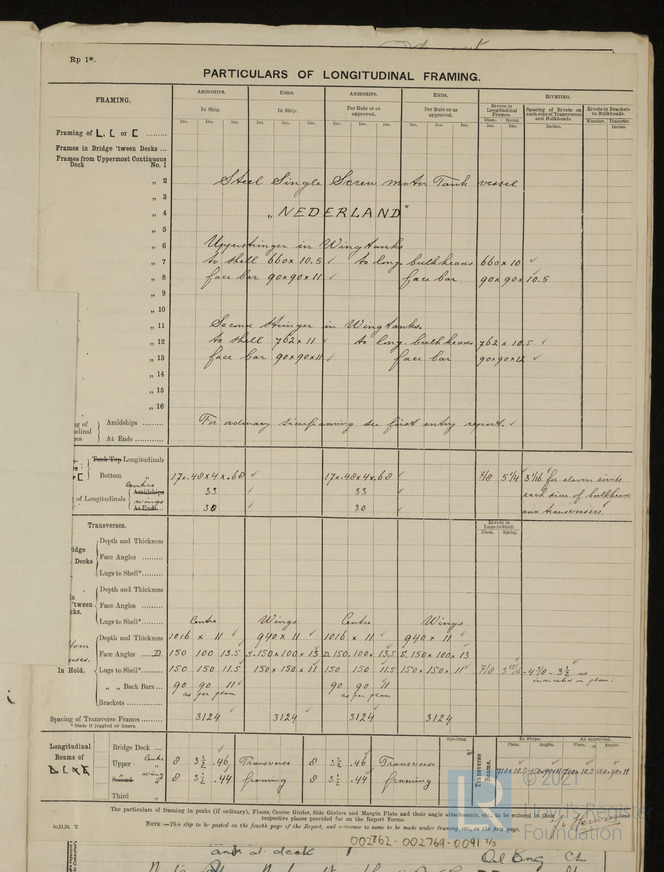 Rp 1*.
PARTICULARS OF LONGITUDINAL FRAMING.
FRAMING.
AMIDSHIPS. ENDS. AMIDSHIPS. ENDS. RIVETING.
In Ship. In Ship. Per Rule or as approved. Per Rule or as approved.
Rivets in Longitudinal Frames. Spacing of Rivets on each side of Transverses and Bulkheads. Rivets in Brackets to Bulkheads.
Ins. Ins. Ins. Ins. Ins. Ins. Ins. Ins. Ins. Ins. Ins. Ins. Diam. Spcng. Inches. Number. Diameter.
Inches.
Framing of L, [ or [ ........
Frames in Bridge 'tween Decks ...
Frames from Uppermost Continuous
Deck No. 1
„ 2 Steel Single Screw motor Tank vessel
„ 3
„ 4 "NEDERLAND"
„ 5
„ 6 Upperstringer in Wingtanks
„ 7 to shell 660 x 10.5 ✓ to long. bulkheads 660 x 10 ✓
„ 8 face bar 90x90x11 ✓ face bar 90x90x10.5
„ 9
„ 10
„ 11 Second stringer in Wingtanks.
„ 12 to shell 762 x 11 ✓ to long. bulkheads 762 x 10.5 ✓
„ 13 face bar 90x90x11 ✓ face bar 90x90x12 ✓
„ 14
„ 15
„ 16
Amidships For ordinary framing see first entry report. ✓
At Ends
Tank Top Longitudinals
Bottom „ 17x.48x4x.68 ✓ 17x.48x4x.68 ✓ 7/8 5 1/4 3 9/16 for eleven rivets
of Longitudinals Centre Amidships 33 ✓ 33 ✓ each side of bulkhead
wings At Ends 30 ✓ 30 ✓ and transverses.
Transverses.
Rivets in Lugs to Shell
Diam. Spcng.
Depth and Thickness
Decks Face Angles
Lugs to Shell*
Depth and Thickness
'tween Face Angles
Lugs to Shell*
Centre Wings Centre Wings
Depth and Thickness 1016 x 11 ✓ 940 x 11 ✓ 1016 x 11 ✓ 940 x 11 ✓
Face Angles D. 150 100 13.5 S. 150x100x13 D. 150.100.13.5 S. 150x100x13
In Hold. Lugs to Shell* 150 150 11.5 150x150x11 150 150 11.5 150x150x11 7/8 4 7/8 - 3 1/2 as indicated on plan.
„ „ Back Bars 90 90 11 90 90 11
as per plan as per plan
Brackets
Spacing of Transverse Frames 3124 ✓ 3124 ✓ 3124 ✓ 3124
* State if joggled or liners.
Longitudinal Beams of
Bridge Deck ...
Upper „ Centre 8 3 1/2 .46 Transverse 8 3 1/2 .46 Transverse
Second „ wing 8 3 1/2 .44 framing 8 3 1/2 .44 framing
Third
Spacing.
Transverse Beams.
In Ships. As approved.
Plate. Angles. Plate. Angles.
The particulars of framing in peaks (if ordinary), Floors, Centre Girder, Side Girders and Margin Plate and their angle attachments, etc., to be entered in their
respective places provided for on the Report Forms.
NOTE:—This slip to be posted on the fourth page of the Report, and reference to same to be made under framing, etc., on the first page.
© 2021
Lloyd's Register
Foundation
002762-002769-0091 2/3
and at deck
Oil Eng